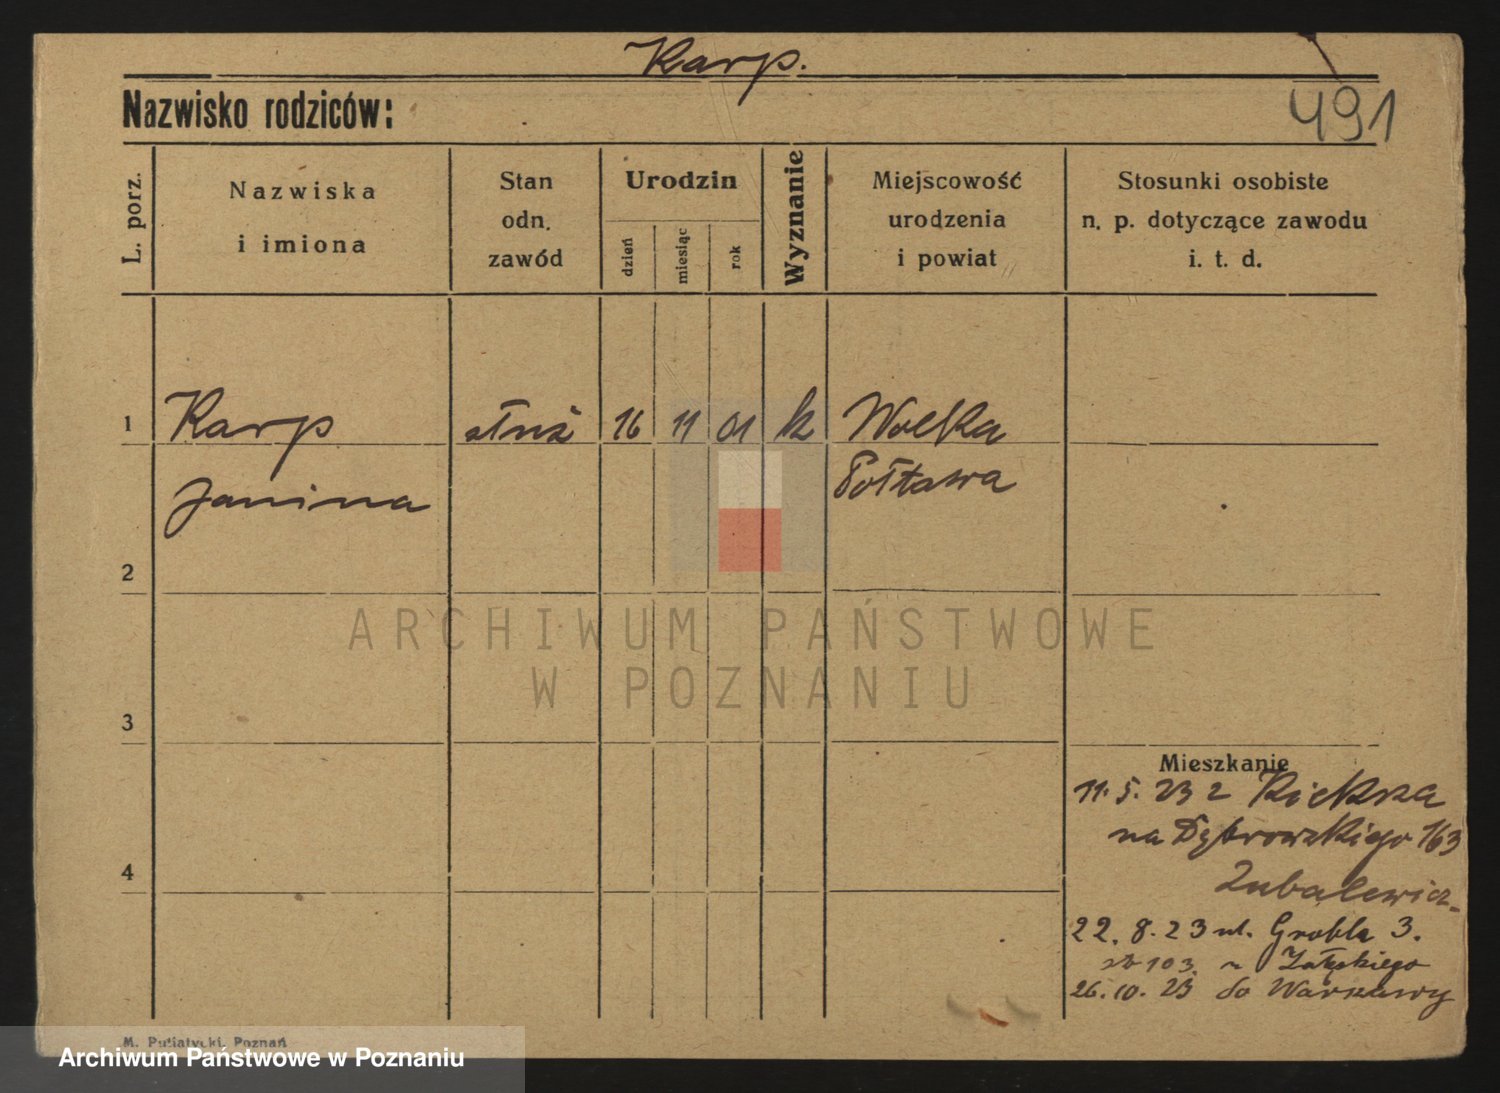 Karp.
Nazwisko rodziców:
491
L. porz.
Nazwiska
i imiona
Stan
odn.
zawód
Urodzin
dzień
miesiąc
rok
Wyznanie
Miejscowość
urodzenia
i powiat
Stosunki osobiste
n. p. dotyczące zawodu
i. t. d.
1
Karp
służ
16
11
01
k
Wolka
Janina
Połtawa
2
3
4
Mieszkanie
11. 5. 23 z Kiekrza
na Dąbrowskiego 163
Zubalewicz
22. 8. 23 ul. Grobla 3.
103 u Załęskiego
26. 10. 23 do Warszawy
M. Putiatycki, Poznań
ARCHIWUM PAŃSTWOWE
W POZNANIU
Archiwum Państwowe w Poznaniu